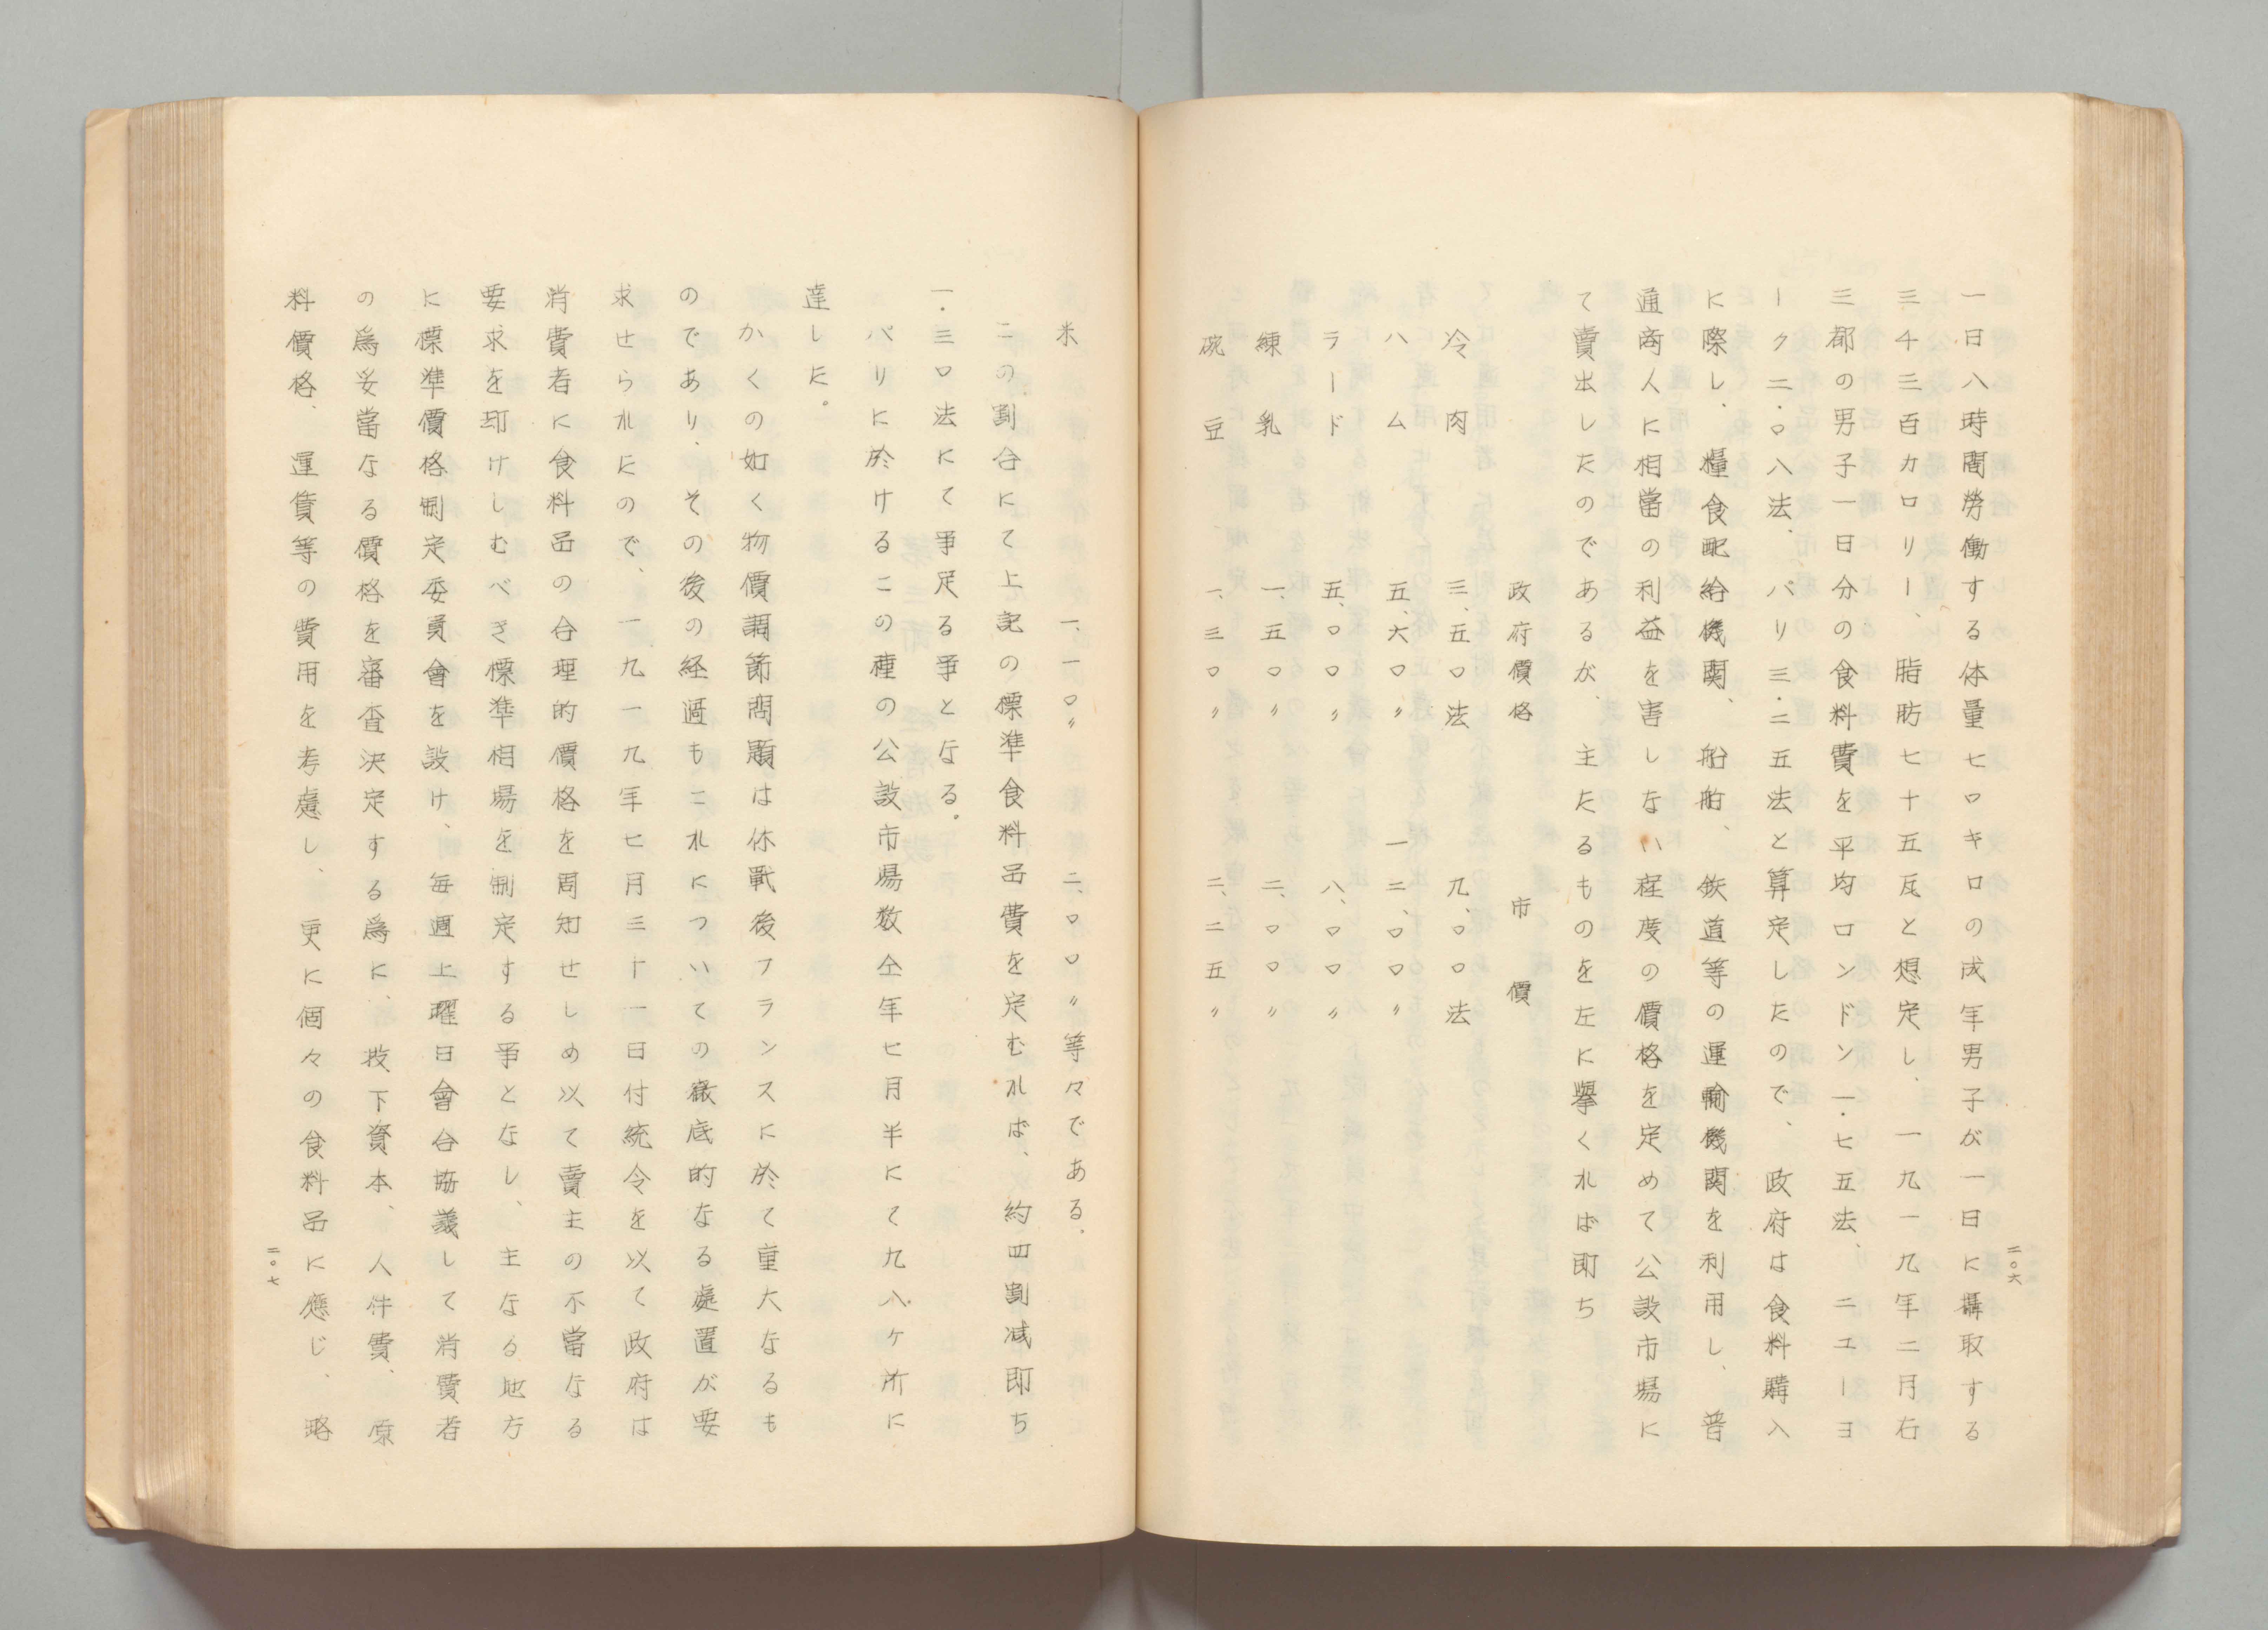 一日八時間勞働する体量七〇キロの成年男子が一日に攝取する
三千三百カロリー、脂肪七十五瓦と想定し、一九一九年二月右
三都の男子一日分の食料費を平均ロンドン一・七五法、ニユーヨ
ーク二・〇八法、パリ三・二五法と算定したので、政府は食料購入
に際し、糧食配給機関、船舶、鉄道等の運輸機関を利用し、普
通商人に相當の利益を害しない程度の價格を定めて公設市場に
て賣出したのであるが、主たるものを左に擧くれば即ち
政府價格 市價
冷肉 三、五〇法 九、〇〇法
ハム 五、六〇〃 一二、〇〇〃
ラード 五、〇〇〃 八、〇〇〃
練乳 一、五〇〃 二、〇〇〃
豌豆 一、三〇〃 二、二五〃
二〇六
米 一、一〇〃 二、〇〇〃等々である。
この割合にて上記の標準食料品費を定むれば、約四割減即ち
一・三〇法にて事足る事となる。
パリに於けるこの種の公設市場数仝年七月半にて九八ケ所に
達した。
かくの如く物價調節問題は休戰後フランスに於て重大なるも
のであり、その後の経過もこれについての徹底的なる處置が要
求せられたので、一九一九年七月三十一日付統令を以て政府は
消費者に食料品の合理的價格を周知せしめ以て賣主の不當なる
要求を却けしむべき標準相場を制定する事となし、主なる地方
に標準價格制定委員會を設け、毎週土曜日會合協議して消費者
の為妥當なる價格を審査決定する為に、投下資本、人件費、原
料價格、運賃等の費用を考慮し、更に個々の食料品に應じ、略
二〇七